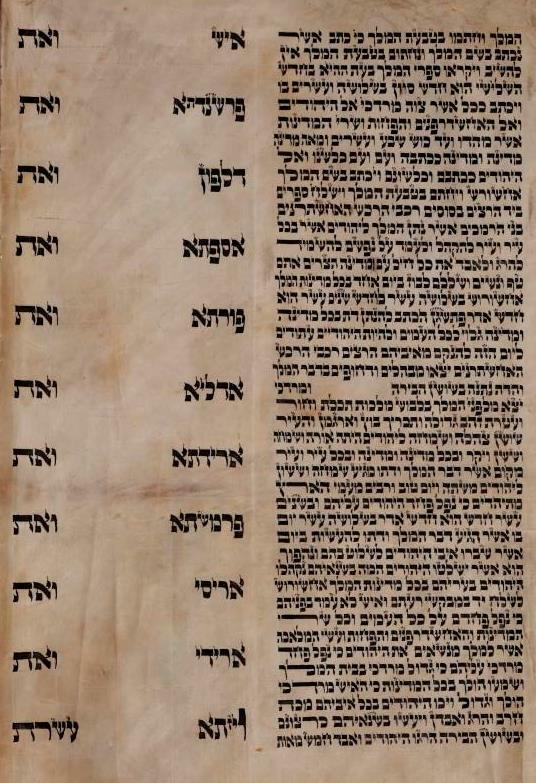 המלך וחתמו בטבעת המלך כי כתב אשר
נכתב בשם המלך ונחתום בטבעת המלך אין
להשיב ויקראו ספרי המלך בעת ההיא בחדש
השלישי הוא חדש סיון בשלושה ועשרים בו
ויכתב ככל אשר צוה מרדכי אל היהודים
ואל האחשדרפנים והפחות ושרי המדינות
אשר מהדו ועד כוש שבע ועשרים ומאה מדינה
מדינה ומדינה ככתבה ועם ועם כלשנו ואל
היהודים ככתבם וכלשונם ויכתב בשם המלך
אחשורש ויחתם בטבעת המלך וישלח ספרים
ביד הרצים בסוסים רכבי הרכש האחשתרנים
בני הרמכים אשר נתן המלך ליהודים אשר בכל
עיר ועיר להקהל ולעמד על נפשם להשמיד
להרג ולאבד את כל חיל עם ומדינה הצרים אתם
טף ונשים ושללם לבוז ביום אחד בכל מדינות המלך
אחשורוש בשלושה עשר לחדש שנים עשר הוא
חדש אדר פתשגן הכתב להנתן דת בכל מדינה
ומדינה גלוי לכל העמים ולהיות היהודים עתודים
ליום הזה להנקם מאיביהם הרצים רכבי הרכש
האחשתרנים יצאו מבהלים ודחופים בדבר המלך
והדת נתנה בשושן הבירה ומרדכי
יצא מלפני המלך בלבוש מלכות תכלת וחור
ועטרת זהב גדולה ותכריך בוץ וארגמן והעיר
שושן צהלה ושמחה ליהודים היתה אורה ושמחה
וששן ויקר ובכל מדינה ומדינה ובכל עיר ועיר
מקום אשר דבר המלך ודתו מגיע שמחה וששון
ליהודים משתה ויום טוב ורבים מעמי הארץ
מתיהדים כי נפל פחד היהודים עליהם ובשנים
עשר חדש הוא חדש אדר בשלושה עשר יום
בו אשר הגיע דבר המלך ודתו להעשות ביום
אשר שברו איבי היהודים לשלוט בהם ונהפוך
הוא אשר ישלטו היהודים המה בשנאיהם נקהלו
היהודים בעריהם בכל מדינות המלך אחשורוש
לשלח יד במבקשי רעתם ואיש לא עמד בפניהם
כי נפל פחדם על כל העמים וכל שרי
המדינות והאחשדרפנים והפחות ועשי המלאכה
אשר למלך מנשאים את היהודים כי נפל פחד
מרדכי עליהם כי גדול מרדכי בבית המלך
ושמעו הולך בכל המדינות כי האיש מרדכי
הולך וגדול ויכו היהודים בכל איביהם מכת
חרב והרג ואבדן ויעשו בשנאיהם כרצונם
ובשושן הבירה הרגו היהודים ואבד חמש מאות
איש ואת
פרשנדתא ואת
דלפון ואת
אספתא ואת
פורתא ואת
אדליא ואת
ארידתא ואת
פרמשתא ואת
אריסי ואת
ארידי ואת
ויזתא עשרת